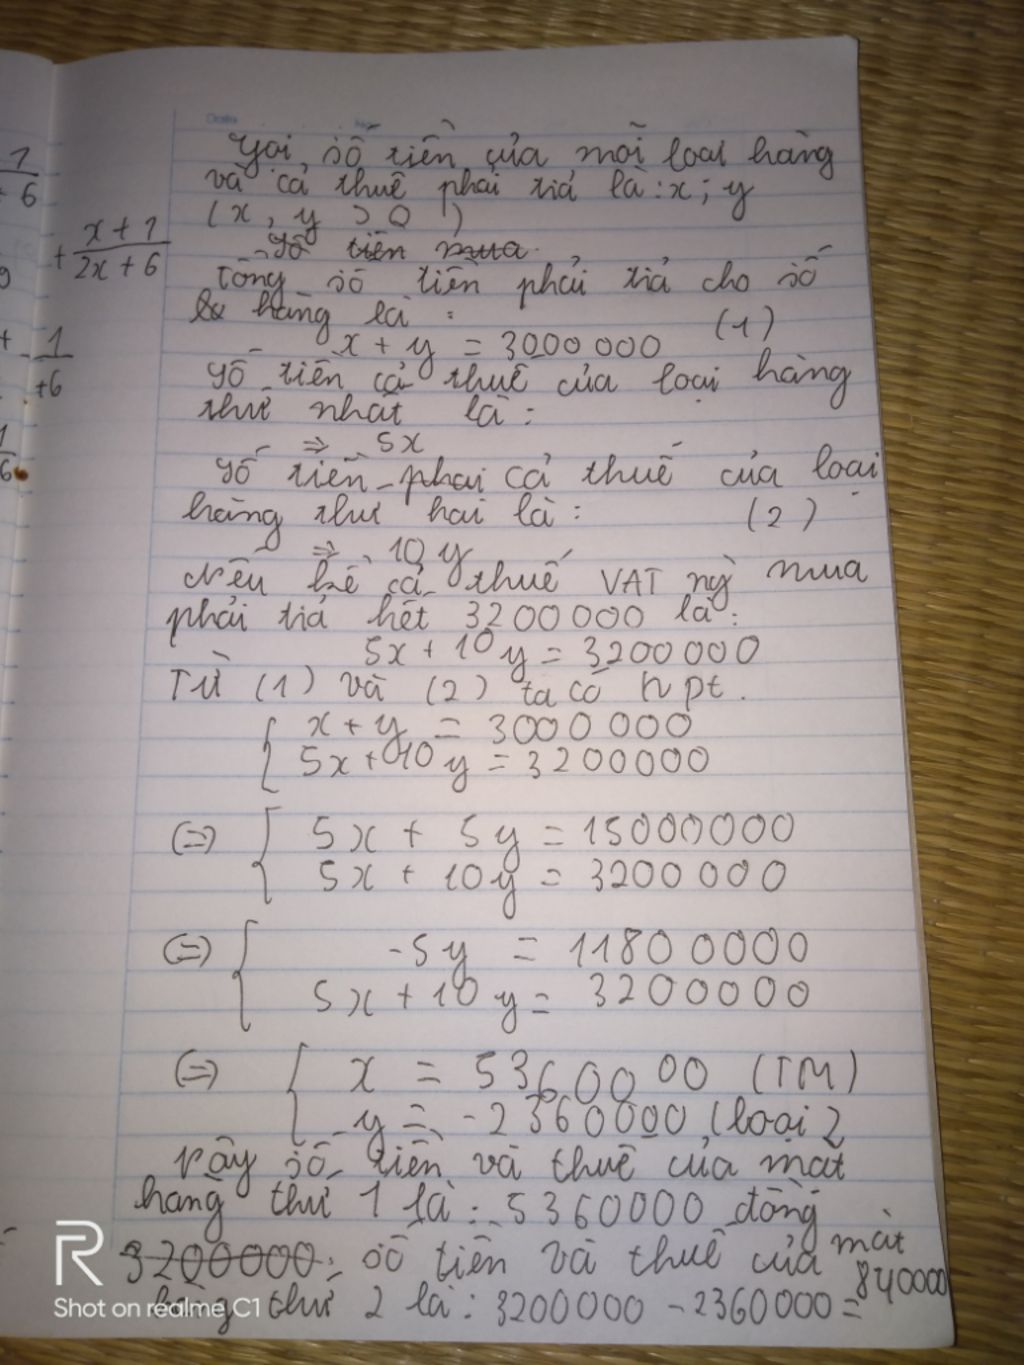 Gọi số tiền của mỗi loại hàng
và cả thuế phải trả là : x ; y
( x , y > 0 )
Số tiền mua
Tổng số tiền phải trả cho số
hàng là :
x + y = 3000 000 (1)
Số tiền cả thuế của loại hàng
thứ nhất là :
⇒ 5x
Số tiền phải cả thuế của loại
hàng thứ hai là : (2)
⇒ 10y
Nếu kể cả thuế VAT ng` mua
phải trả hết 3200 000 là :
5x + 10y = 3200 000
Từ (1) và (2) ta có hpt.
{ x + y = 3000 000
5x + 10y = 3200000
(=) { 5x + 5y = 15000000
5x + 10y = 3200 000
(=) { -5y = 11800000
5x + 10y = 3200000
(=) { x = 5360000 (TM)
y = -2360000 (loại)
Vậy số tiền và thuế của mặt
hàng thứ 1 là : 5360000 đồng
3200000; số tiền và thuế của mặt
hàng thứ 2 là : 3200000 - 2360000 = 840000
1
+ 6
+ x + 1
2x + 6
+ 1
+6
1
6
Shot on realme C1